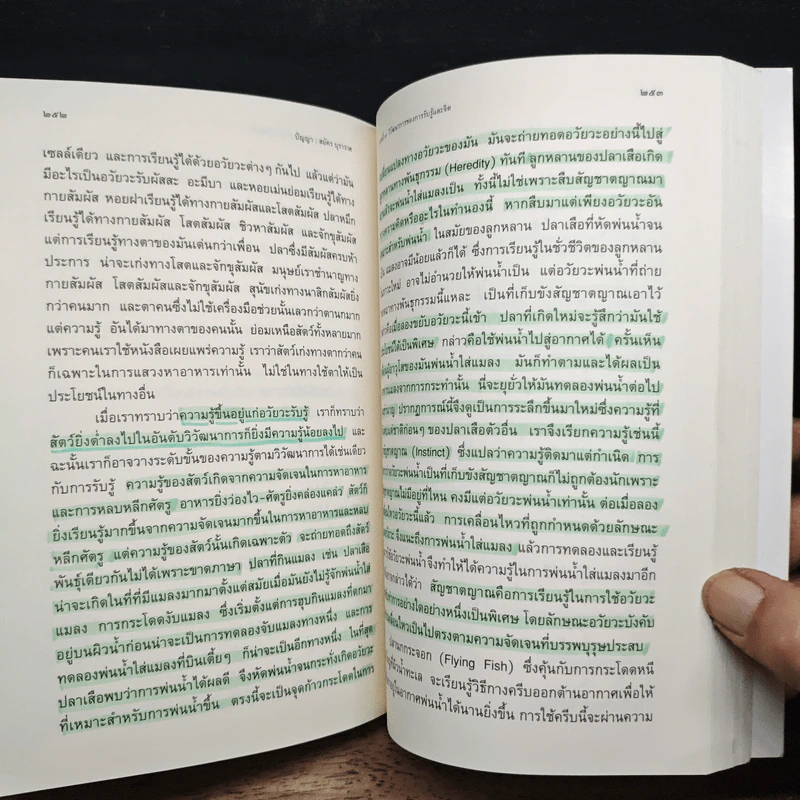 ๒๕๒
ปัญญา : สมัคร บุราวาศ
เซลล์เดียว และการเรียนรู้ได้ด้วยอวัยวะต่างๆ กันไป แล้วแต่ว่ามัน
มีอะไรเป็นอวัยวะรับผัสสะ อะมีบา และหอยเม่นย่อมเรียนรู้ได้ทาง
กายสัมผัส หอยฝาเรียนรู้ได้ทางกายสัมผัสและโสตสัมผัส ปลาหมึก
เรียนรู้ได้ทางกายสัมผัส โสตสัมผัส ชิวหาสัมผัส และจักขุสัมผัส
แต่การเรียนรู้ทางตาของมันเด่นกว่าเพื่อน ปลาซึ่งมีสัมผัสครบห้า
ประการ น่าจะเก่งทางโสตและจักขุสัมผัส มนุษย์เราชำนาญทาง
กายสัมผัส โสตสัมผัสและจักขุสัมผัส สุนัขเก่งทางนาสิกสัมผัสยิ่ง
กว่าคนมาก และตาคนซึ่งไม่ใช้เครื่องมือช่วยนั้นเลวกว่าตานกมาก
แต่ความรู้ อันได้มาทางตาของคนนั้น ย่อมเหนือสัตว์ทั้งหลายมาก
เพราะคนเราใช้หนังสือเผยแพร่ความรู้ เราว่าสัตว์เก่งทางตากว่าคน
ก็เฉพาะในการแสวงหาอาหารเท่านั้น ไม่ใช่ในทางใช้ตาให้เป็น
ประโยชน์ในทางอื่น
เมื่อเราทราบว่าความรู้ขึ้นอยู่แก่อวัยวะรับรู้ เราก็ทราบว่า
สัตว์ยิ่งต่ำลงไปในอันดับวิวัฒนาการก็ยิ่งมีความรู้น้อยลงไป และ
ฉะนั้นเราก็อาจวางระดับขั้นของความรู้ตามวิวัฒนาการได้เช่นเดียว
กับการรับรู้ ความรู้ของสัตว์เกิดจากความจัดเจนในการหาอาหาร
และการหลบหลีกศัตรู อาหารยิ่งว่องไว-ศัตรูยิ่งคล่องแคล่ว สัตว์ก็
ยิ่งเรียนรู้มากขึ้นจากความจัดเจนมากขึ้นในการหาอาหารและหลบ
หลีกศัตรู แต่ความรู้ของสัตว์นั้นเกิดเฉพาะตัว จะถ่ายทอดถึงสัตว์
พันธุ์เดียวกันไม่ได้เพราะขาดภาษา ปลาที่กินแมลง เช่น ปลาเสือ
น่าจะเกิดในที่ที่มีแมลงมากมาตั้งแต่สมัยเมื่อมันยังไม่รู้จักพ่นน้ำใส่
แมลง การกระโดดงับแมลง ซึ่งเริ่มตั้งแต่การฮุบกินแมลงที่ตกมา
อยู่บนผิวน้ำก่อนน่าจะเป็นการทดลองจับแมลงทางหนึ่ง และการ
ทดลองพ่นน้ำใส่แมลงที่บินเตี้ยๆ ก็น่าจะเป็นอีกทางหนึ่ง ในที่สุด
ปลาเสือพบว่าการพ่นน้ำได้ผลดี จึงหัดพ่นน้ำจนกระทั่งเกิดอวัยวะ
ที่เหมาะสำหรับการพ่นน้ำขึ้น ตรงนี้จะเป็นจุดก้าวกระโดดในการ
๒๕๓
วิวัฒนาการของการรับรู้และจิต
เปลี่ยนแปลงทางอวัยวะของมัน มันจะถ่ายทอดอวัยวะอย่างนี้ไปสู่
ลูกหลานทางพันธุกรรม (Heredity) ทันที ลูกหลานของปลาเสือเกิด
แล้วจะพ่นน้ำใส่แมลงเป็น ทั้งนี้ไม่ใช่เพราะสืบสัญชาตญาณมา
ทางความคิดหรืออะไรในทำนองนี้ หากสืบมาแต่เพียงอวัยวะอัน
เหมาะสำหรับพ่นน้ำ ในสมัยของลูกหลาน ปลาเสือที่หัดพ่นน้ำจน
แมลงอาจมีน้อยแล้วก็ได้ ซึ่งการเรียนรู้ในชั่วชีวิตของลูกหลาน
ใหม่ อาจไม่อำนวยให้พ่นน้ำเป็น แต่อวัยวะพ่นน้ำที่ถ่าย
มาทางพันธุกรรมนี้แหละ เป็นที่เก็บขังสัญชาตญาณเอาไว้
คือเมื่อลองขยับอวัยวะนี้เข้า ปลาที่เกิดใหม่จะรู้สึกว่ามันใช้
ได้เป็นพิเศษ กล่าวคือใช้พ่นน้ำไปสู่อากาศได้ ครั้นเห็น
ผู้อาวุโสของมันพ่นน้ำใส่แมลง มันก็ทำตามและได้ผลเป็น
แมลงจากการกระทำนั้น นี่จะยุยั่วให้มันทดลองพ่นน้ำต่อไป
ปรากฏการณ์นี้จึงดูเป็นการระลึกขึ้นมาใหม่ซึ่งความรู้ที่
ชาติก่อนๆ ของปลาเสือตัวอื่น เราจึงเรียกความรู้เช่นนี้
(Instinct) ซึ่งแปลว่าความรู้ติดมาแต่กำเนิด การ
อวัยวะพ่นน้ำเป็นที่เก็บขังสัญชาตญาณก็ไม่ถูกต้องนักเพราะ
ไม่มีอยู่ที่ไหน คงมีแต่อวัยวะพ่นน้ำเท่านั้น ต่อเมื่อลอง
อวัยวะนี้แล้ว การเคลื่อนไหวที่ถูกกำหนดด้วยลักษณะ
จะแนะถึงการพ่นน้ำใส่แมลง แล้วการทดลองและเรียนรู้
ใช้อวัยวะพ่นน้ำจึงทำให้ได้ความรู้ในการพ่นน้ำใส่แมลงมาอีก
กล่าวได้ว่า สัญชาตญาณคือการเรียนรู้ในการใช้อวัยวะ
ทำการอย่างใดอย่างหนึ่งเป็นพิเศษ โดยลักษณะอวัยวะบังคับ
ให้เป็นไปตรงตามความจัดเจนที่บรรพบุรุษประสบ
ปลานกกระจอก (Flying Fish) ซึ่งคุ้นกับการกระโดดหนี
น้ำทะเล จะเรียนรู้วิธีกางครีบออกต้านอากาศเพื่อให้
อยู่ในอากาศพ่นน้ำได้นานยิ่งขึ้น การใช้ครีบนี้จะผ่านความ